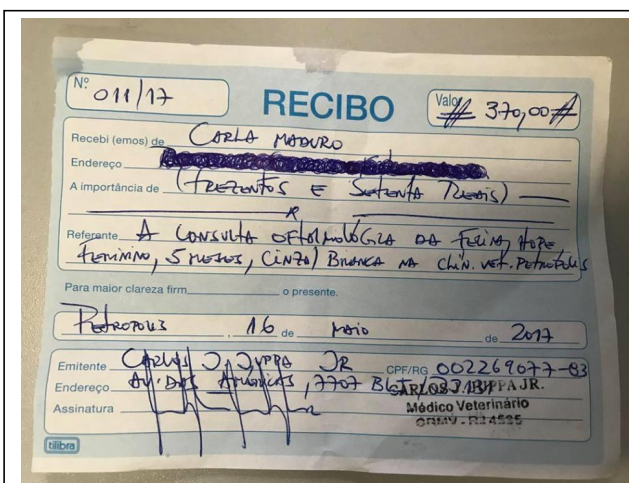 Nº 011/17
RECIBO
Valor # 370,00 #
Recebi (emos) de CARLA MADURO
Endereço
A importância de (TREZENTOS E SETENTA REAIS)
Referente A CONSULTA OFTALMOLÓGICA DA FELINA HOPE
FEMININO, 5 MESES, CINZA/BRANCA NA CLIN. VET. PETRÓPOLIS
Para maior clareza firm o presente.
PETRÓPOLIS 16 de MAIO de 2017
Emitente CARLOS JR CPF/RG 002269077-83
Endereço AV. DAS AMÉRICAS, 7707 BL
CARLOS J. JR.
Assinatura
Médico Veterinário
CRMV - RJ 4535
tilibra